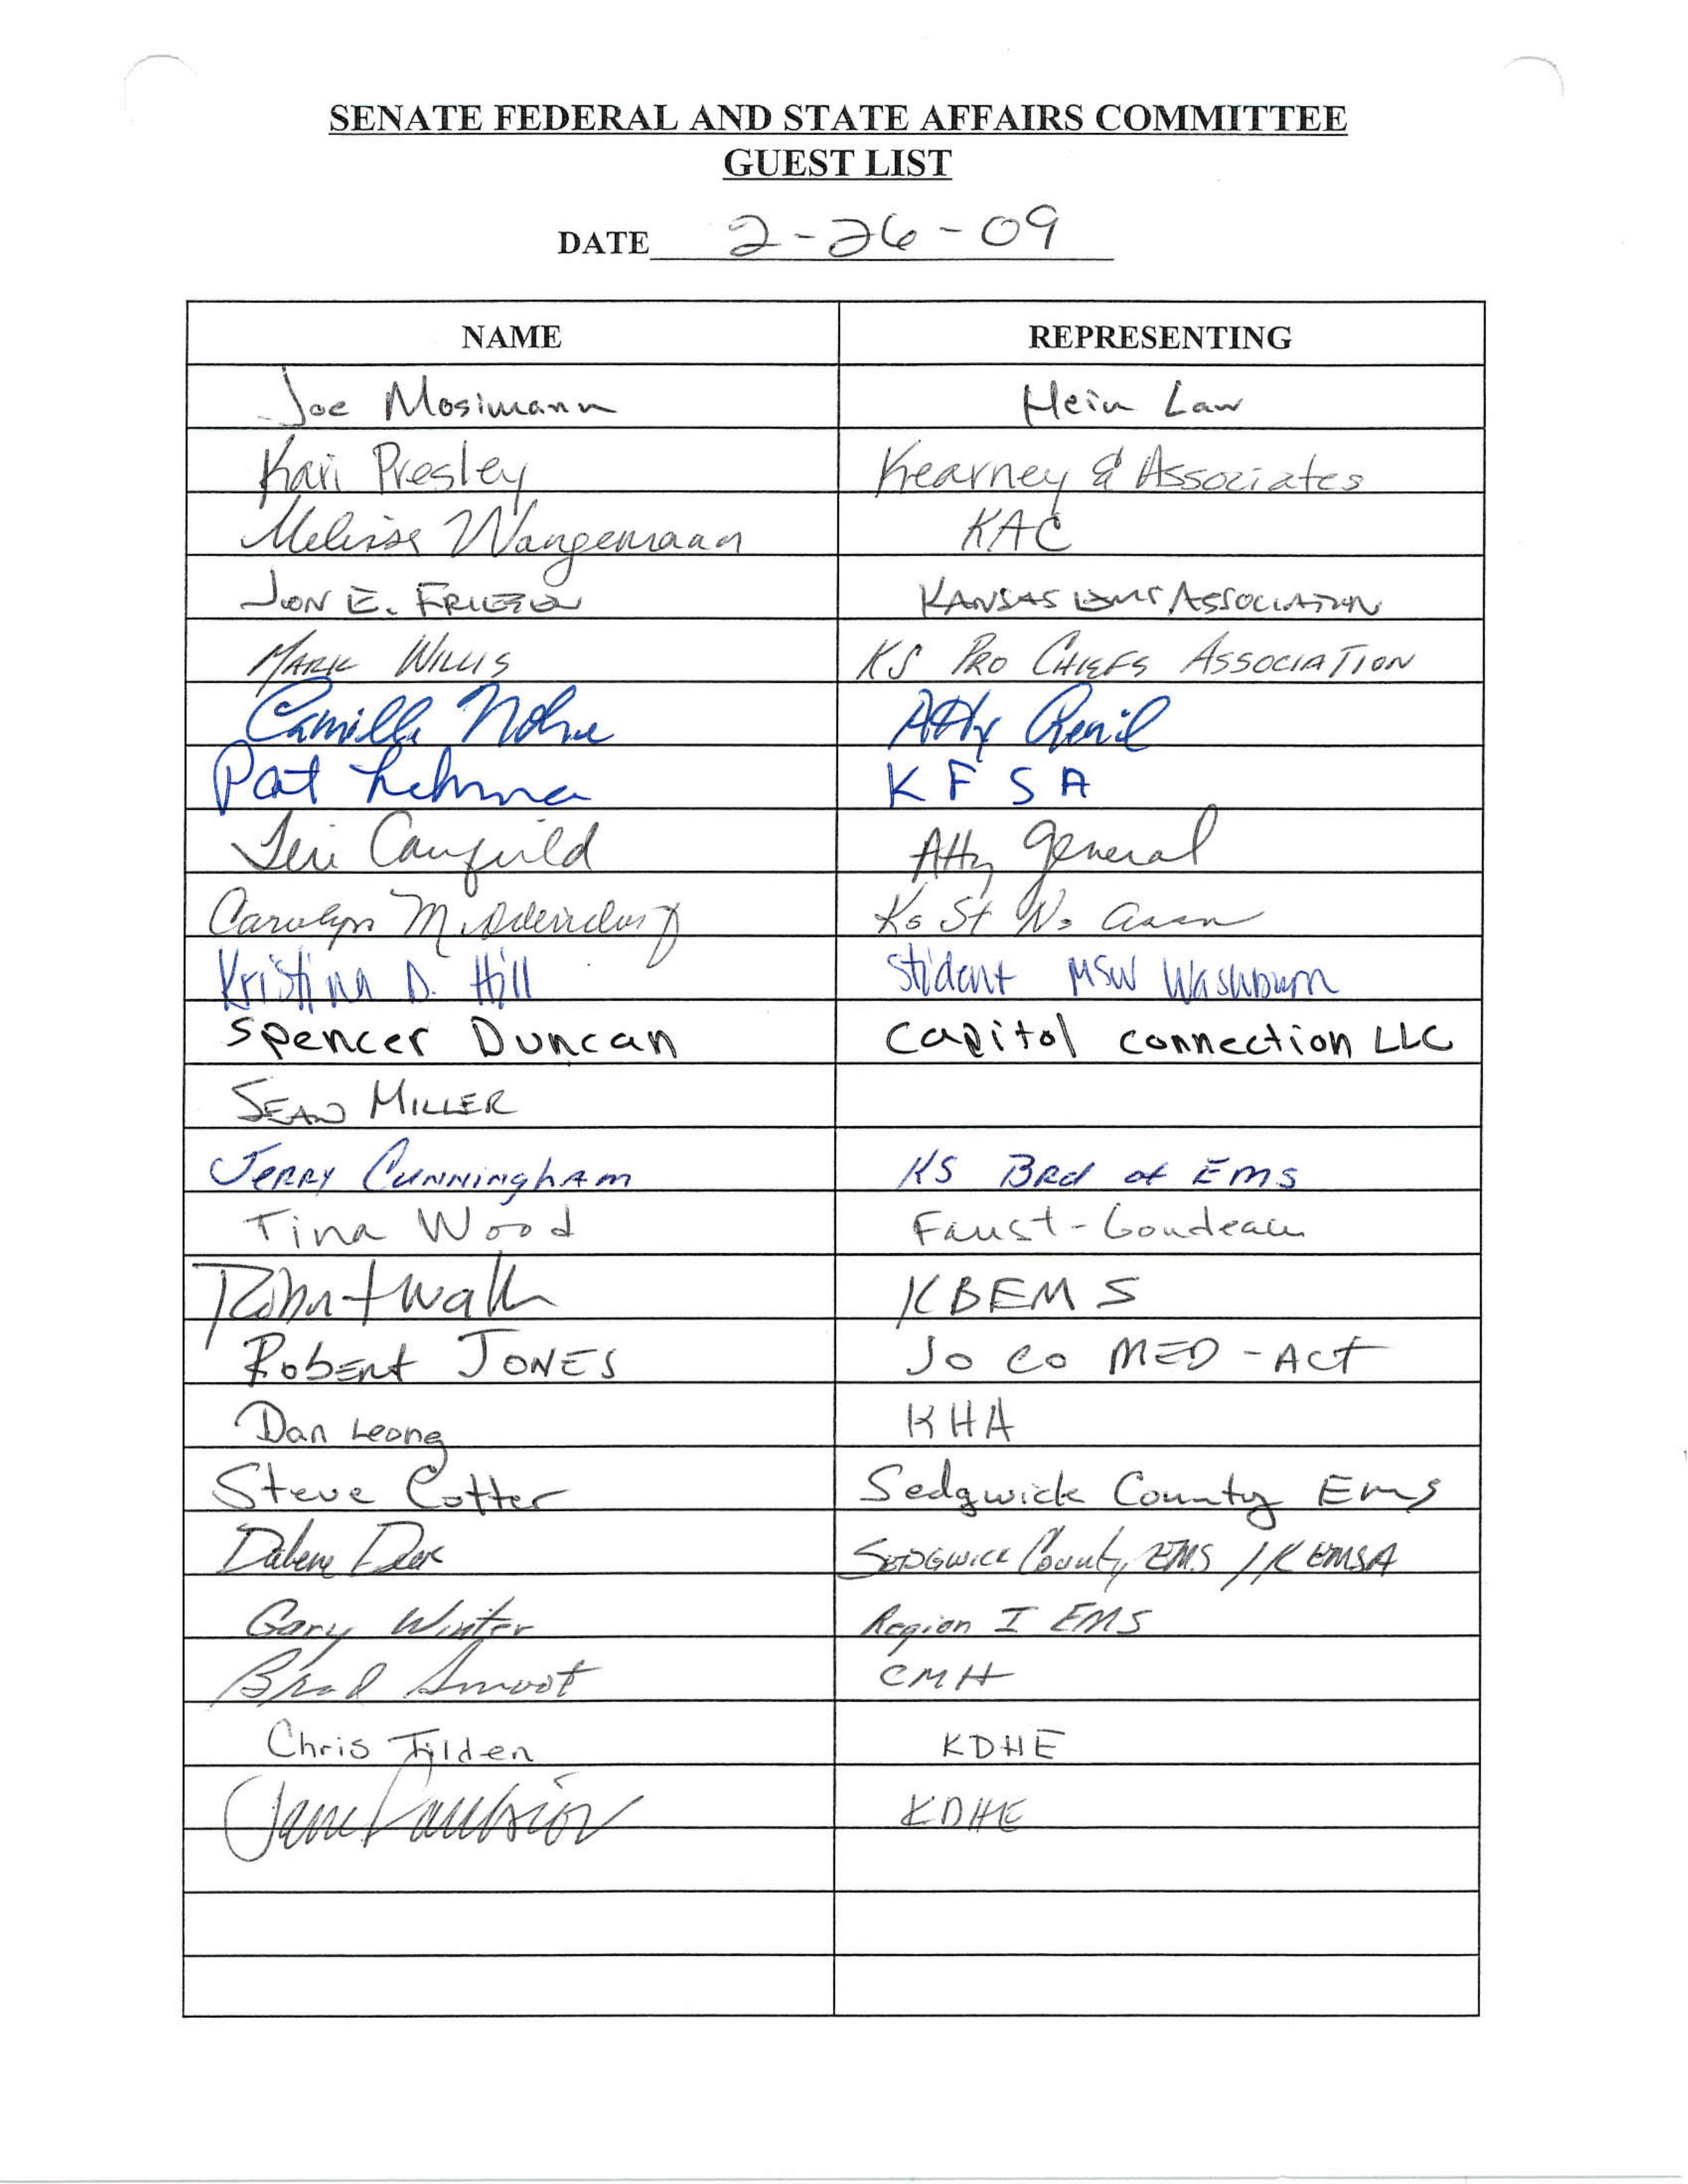 SENATE FEDERAL AND STATE AFFAIRS COMMITTEE
GUEST LIST
DATE 2-26-09
NAME REPRESENTING
Joe Mosimann Hein Law
Kari Presley Kearney & Associates
Melissa Wangemann KAC
JON E. FRIESEN KANSAS EMS ASSOCIATION
MARK WILLIS KS PRO CHIEFS ASSOCIATION
Camille Nohe Atty
Pat Lehman KFSA
Teri Canfield Atty General
Carolyn Middendorf Ks St Ns Assn
Kristina D. Hill Student MSW Washburn
Spencer Duncan Capitol connection LLC
SEAN MILLER
JERRY CUNNINghAM KS BRd of EMS
Tina Wood Faust-Goudeau
KBEMS
RobERt JONES JO CO MED-ACT
Dan Leong KHA
Steve Cotter Sedgwick County EMS
SEDGWICK County EMS / KEMSA
Gary Winter Region I EMS
Brad Smoot CMH
Chris Tilden KDHE
KDHE